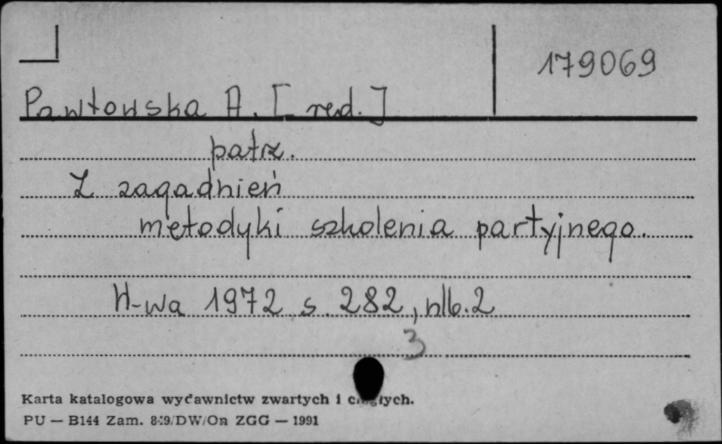 179069
Pawłowska A. [red.]
patrz.
Z zagadnień
metodyki szkolenia partyjnego.
W-wa 1972 s. 282, nlb. 2
3
Karta katalogowa wydawnictw zwartych i
PU — B144 Zam. DW/On ZGG — 1991